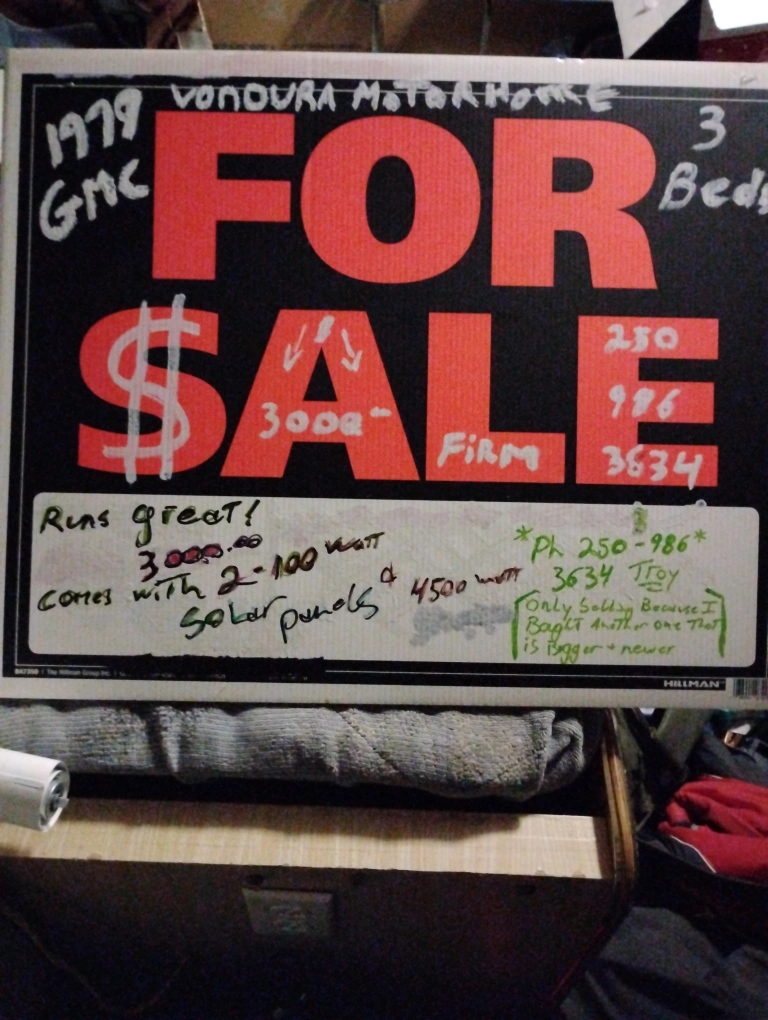 VONDURA MOTORHOME
1979
GMC
3
Beds
FOR
SALE
$
3000--
FIRM
250
986
3634
Runs great!
3000.00
comes with 2-100 watt
solar panels & 4500 watt
*Ph 250-986*
3634 Troy
[Only Selling Because I
Bought Another one That
is Bigger + newer]
HILLMAN™